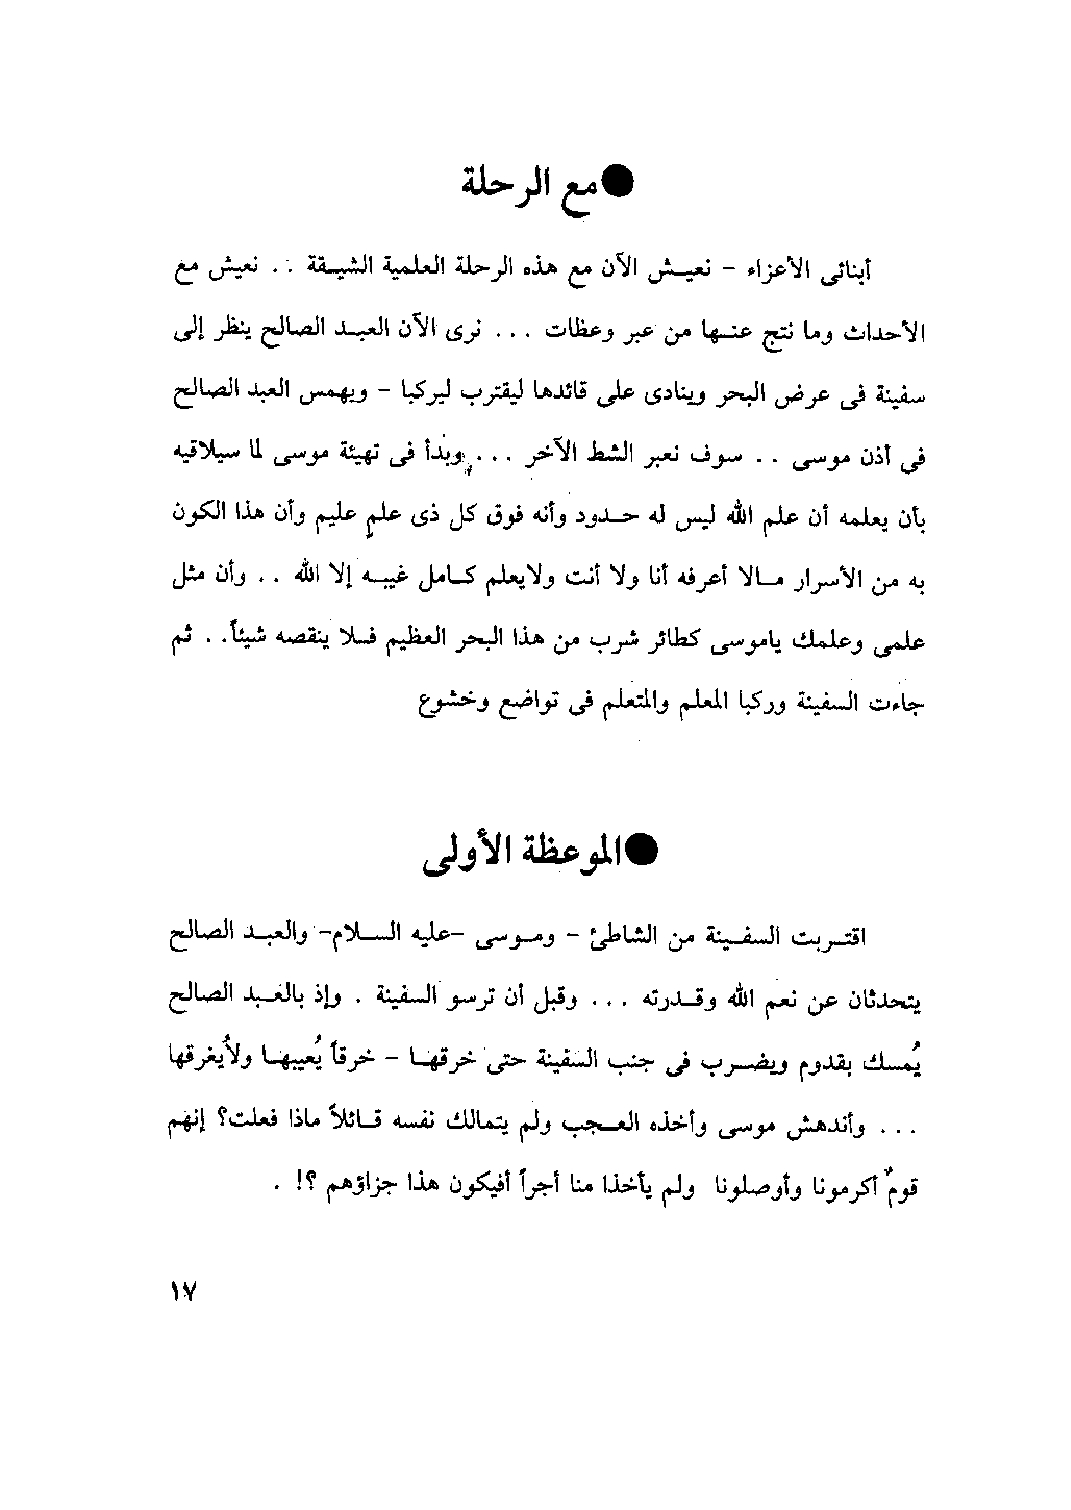 ●مع الرحلة
أبنائى الأعزاء - نعيش الآن مع هذه الرحلة العلمية الشيقة . . نعيش مع
الأحداث وما نتج عنها من عبر وعظات . . . نرى الآن العبد الصالح ينظر إلى
سفينة فى عرض البحر وينادى على قائدها ليقترب ليركبا - ويهمس العبد الصالح
فى أذن موسى . . سوف نعبر الشط الآخر . . . وبدأ فى تهيئة موسى لما سيلاقيه
بأن يعلمه أن علم الله ليس له حدود وأنه فوق كل ذى علمٍ عليم وأن هذا الكون
به من الأسرار مالا أعرفه أنا ولا أنت ولايعلم كامل غيبه إلا الله . . وأن مثل
علمى وعلمك ياموسى كطائر شرب من هذا البحر العظيم فلا ينقصه شيئاً. . ثم
جاءت السفينة وركبا المعلم والمتعلم فى تواضع وخشوع
●الموعظة الأولى
اقتربت السفينة من الشاطئ - وموسى -عليه السلام- والعبد الصالح
يتحدثان عن نعم الله وقدرته . . . وقبل أن ترسو السفينة . وإذ بالعبد الصالح
يُمسك بقدوم ويضرب فى جنب السفينة حتى خرقها - خرقاً يُعيبها ولايُغرقها
. . . وأندهش موسى وأخذه العجب ولم يتمالك نفسه قائلاً ماذا فعلت؟ إنهم
قومٌ أكرمونا وأوصلونا ولم يأخذا منا أجراً أفيكون هذا جزاؤهم ؟! .
١٧